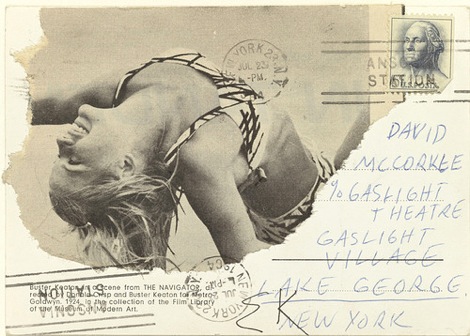 NEW YORK
JUL 23
-PM.
ANSONIA
STATION
U.S. POSTAGE
DAVID
MCCORKLE
% GASLIGHT
THEATRE
GASLIGHT
VILLAGE
LAKE GEORGE
NEW YORK
Buster Keaton in a scene from THE NAVIGATOR,
Crisp and Buster Keaton for Metro
Goldwyn. 1924. In the collection of the Film Library
of the Museum of Modern Art.
ANSONIA
STATION
NEW YORK
JUL